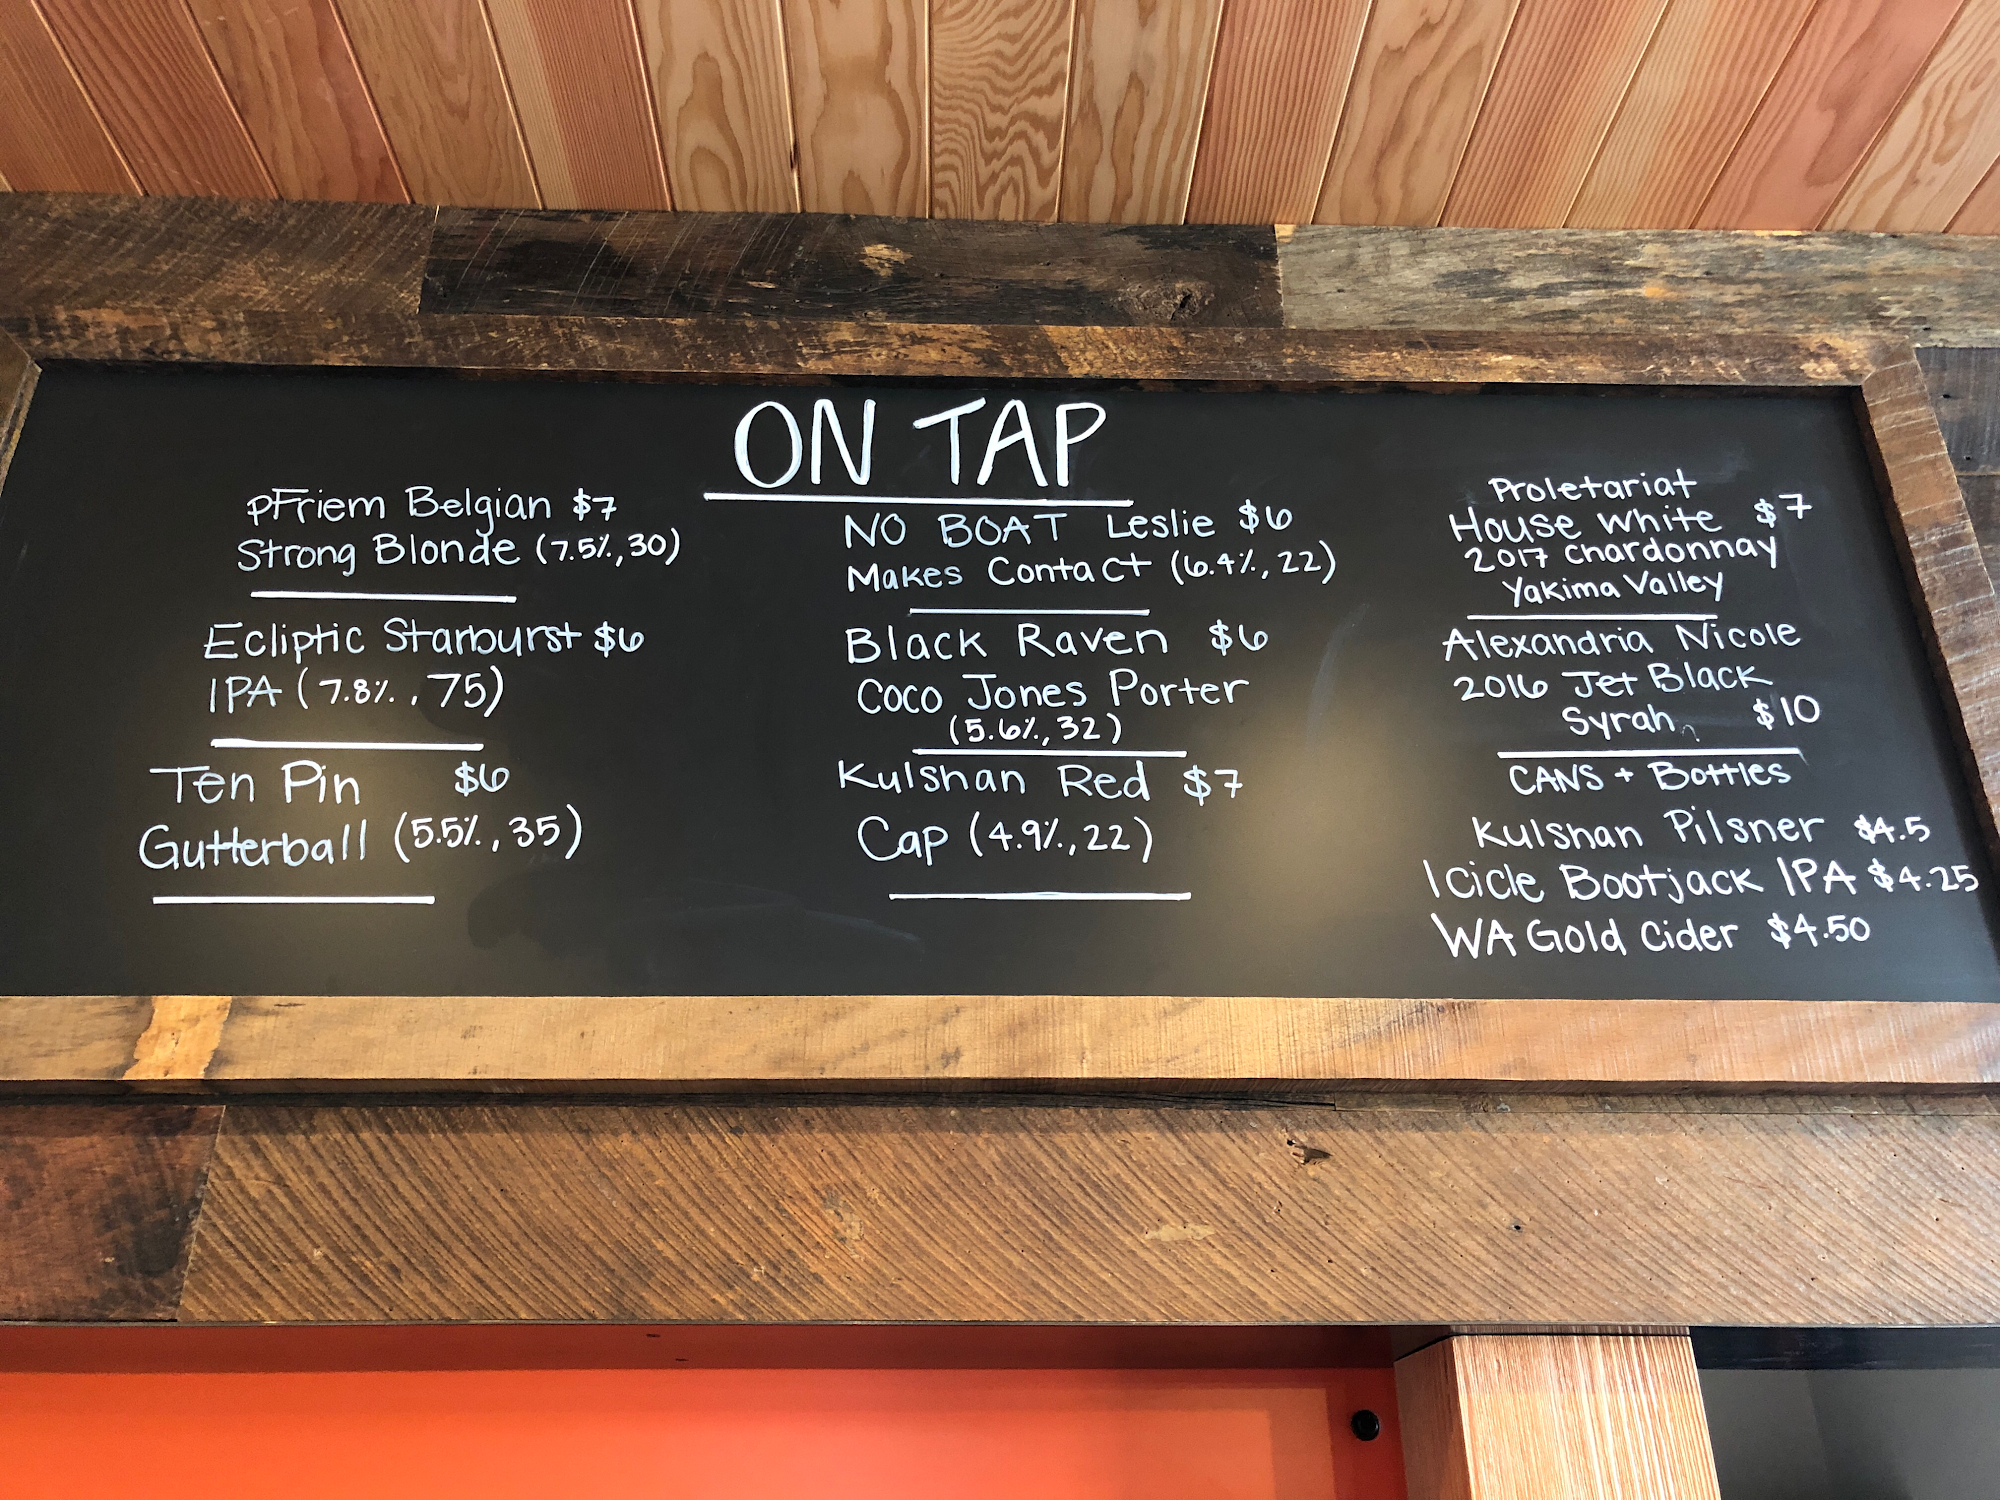 ON TAP
pFriem Belgian $7
Strong Blonde (7.5%, 30)
Ecliptic Starburst $6
IPA (7.8%, 75)
Ten Pin $6
Gutterball (5.5%, 35)
NO BOAT Leslie $6
Makes Contact (6.4%, 22)
Black Raven $6
Coco Jones Porter
(5.6%, 32)
Kulshan Red $7
Cap (4.9%, 22)
Proletariat
House White $7
2017 Chardonnay
Yakima Valley
Alexandria Nicole
2016 Jet Black
Syrah $10
CANS + Bottles
Kulshan Pilsner $4.5
Icicle Bootjack IPA $4.25
WA Gold Cider $4.50